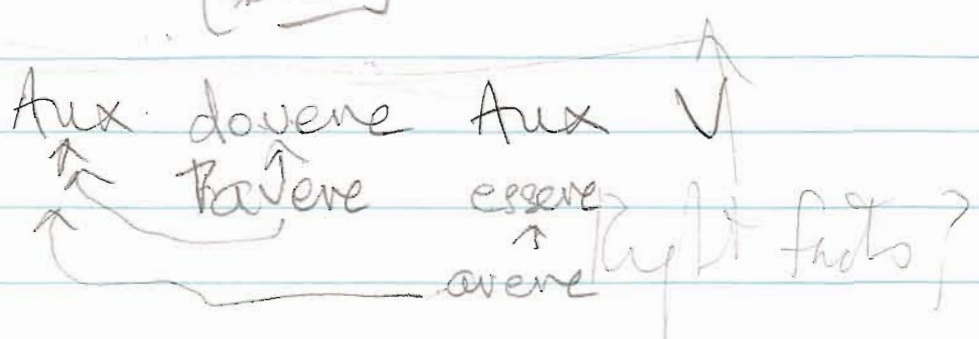 Aux dovere Aux V
essere
avere
[Right facts?]